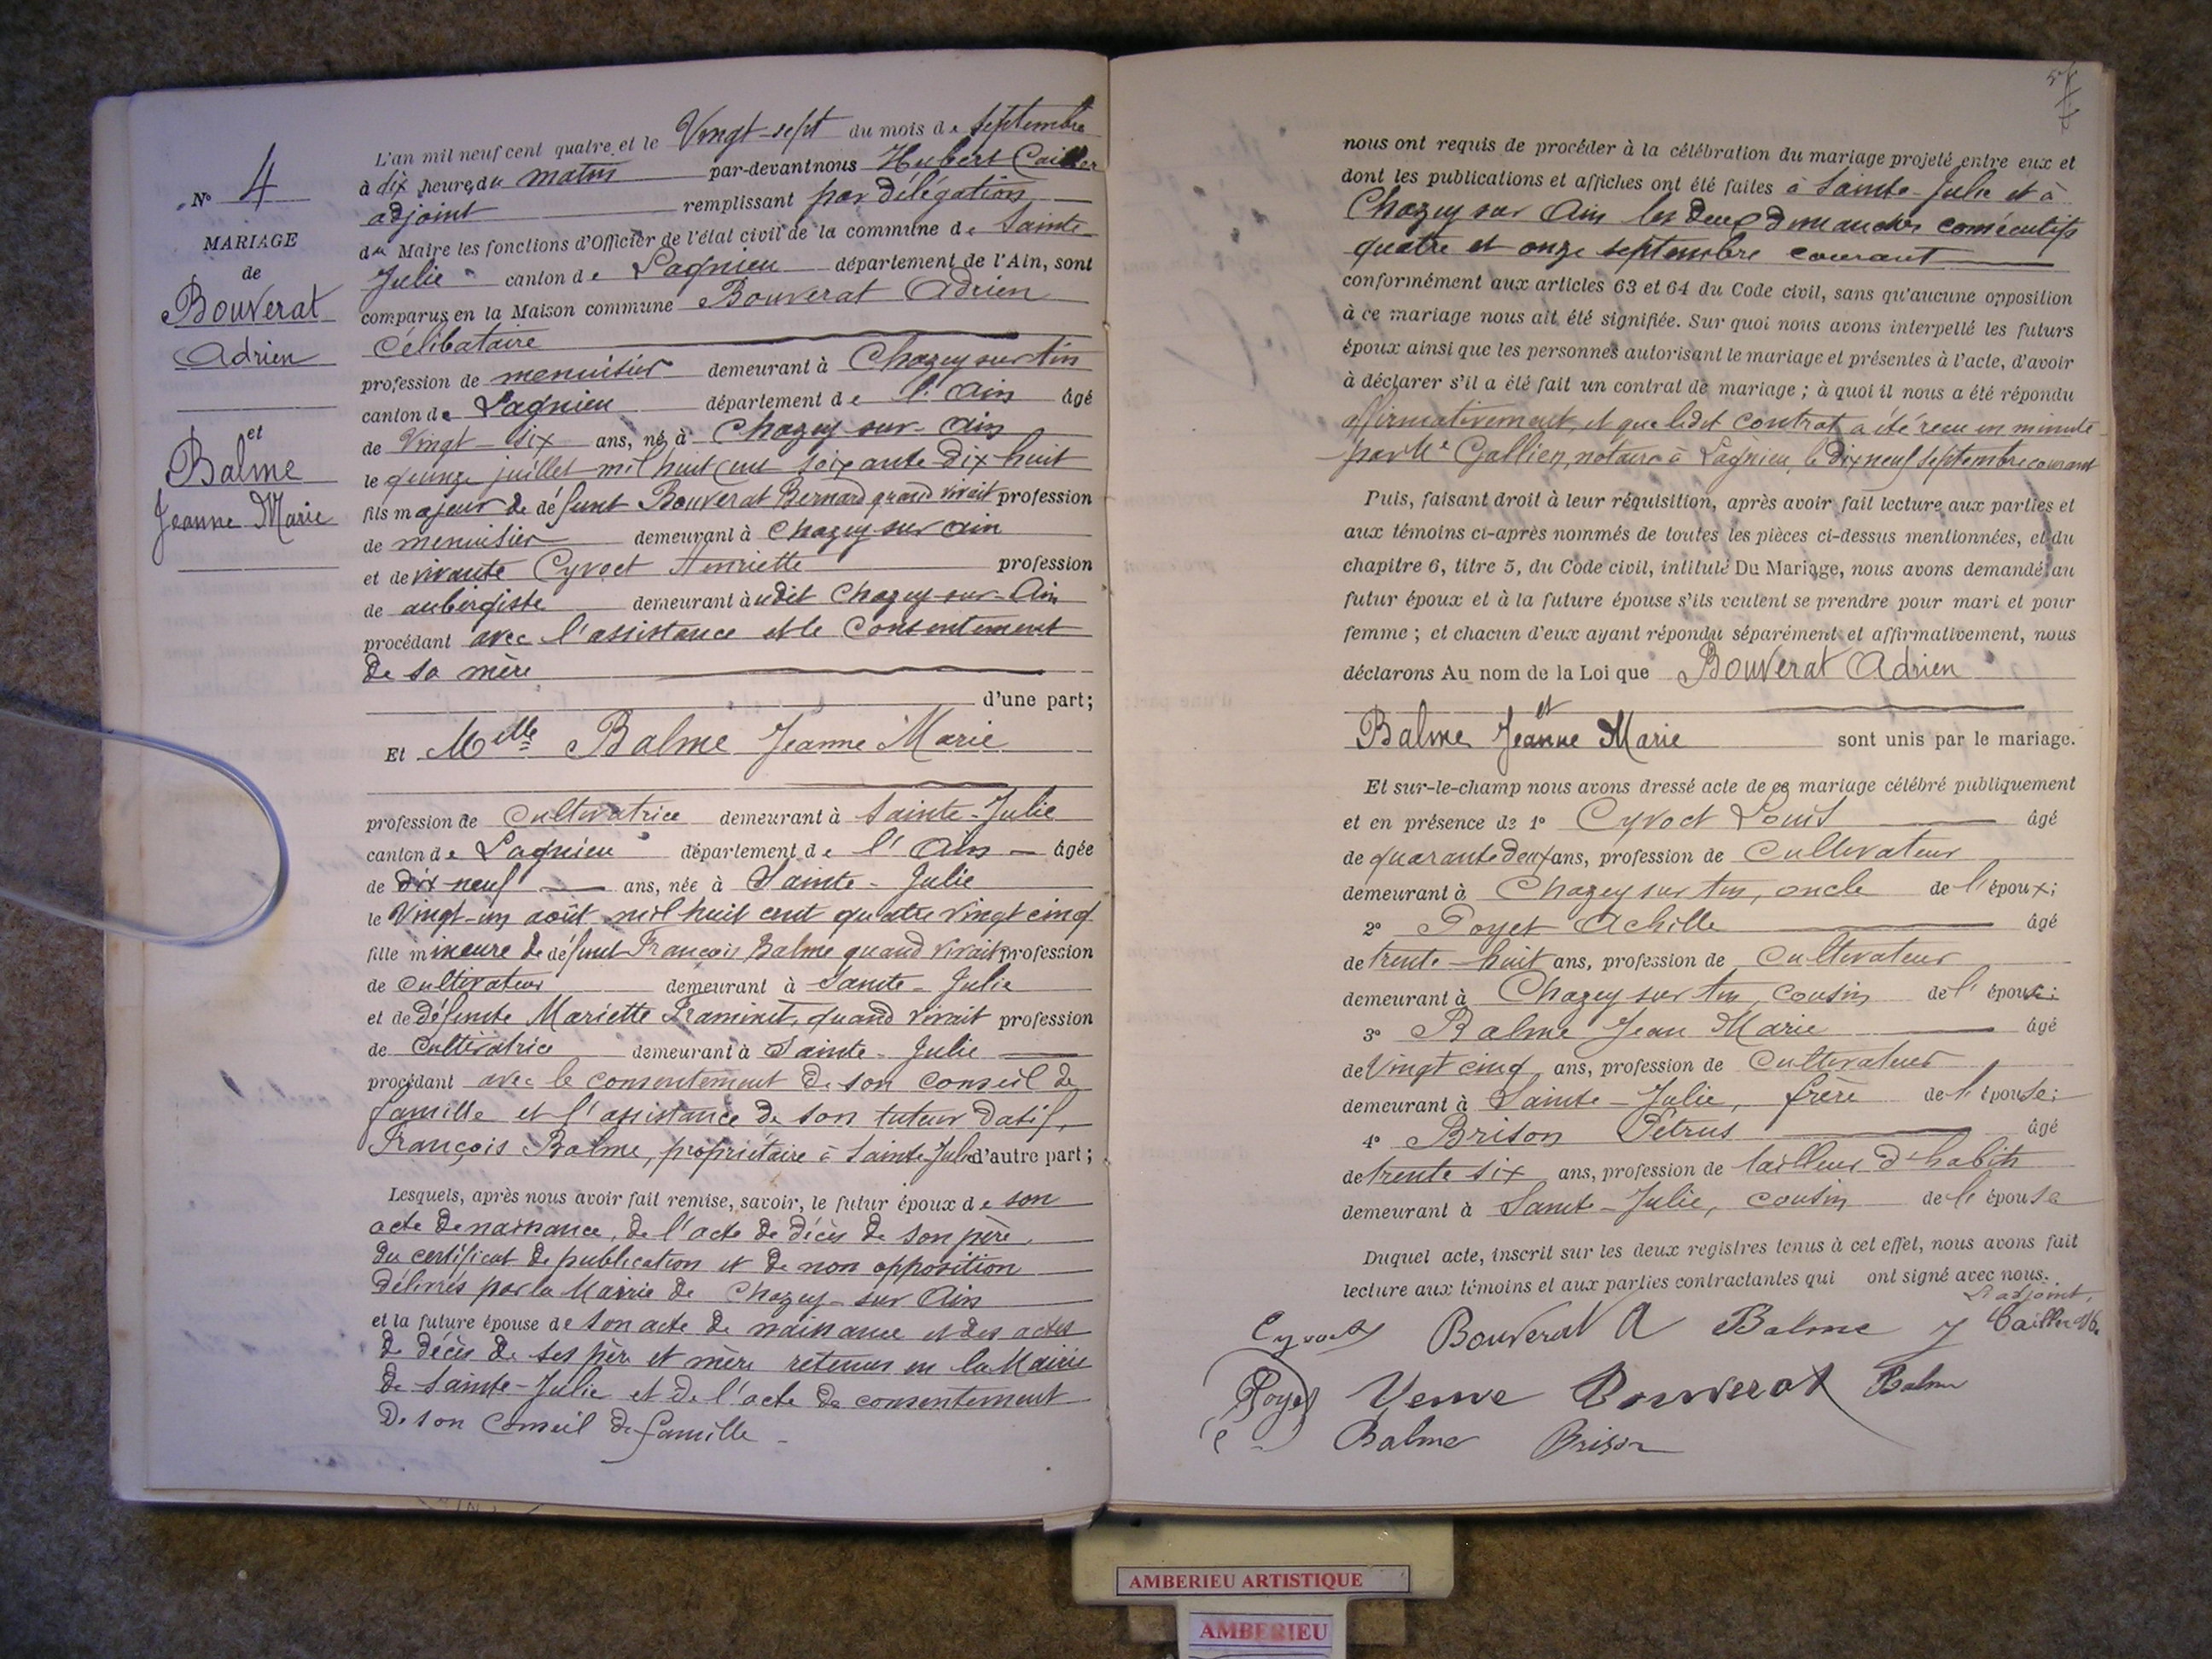 N° 4
MARIAGE
de
Bouverat
Adrien
et
Balme
Jeanne Marie
L'an mil neuf cent quatre et le Vingt-sept du mois de septembre
à dix heures du matin par-devant nous Hubert Cailler
adjoint remplissant par délégation
du Maire les fonctions d'Officier de l'état civil de la commune de Sainte
Julie canton de Lagnieu département de l'Ain, sont
comparus en la Maison commune Bouverat Adrien
Célibataire
profession de menuisier demeurant à Chazey sur Ain
canton de Lagnieu département de l'Ain âgé
de Vingt-six ans, né à Chazey-sur-Ain
le quinze juillet mil huit cent soixante dix huit
fils majeur de défunt Bouverat Bernard quand vivait profession
de menuisier demeurant à Chazey sur Ain
et de vivante Cyvoct Henriette profession
de aubergiste demeurant à udit Chazey-sur-Ain
procédant avec l'assistance et le Consentement
de sa mère
d'une part;
Et Melle Balme Jeanne Marie
profession de Cultivatrice demeurant à Sainte-Julie
canton de Lagnieu département de l'Ain âgée
de dix neuf ans, née à Sainte-Julie
le Vingt-un août mil huit cent quatre vingt cinq
fille mineure de défunt François Balme quand vivait profession
de cultivateur demeurant à Sainte-Julie
et de défunte Mariette Framinet, quand vivait profession
de Cultivatrice demeurant à Sainte-Julie
procédant avec le consentement de son conseil de
famille et l'assistance de son tuteur datif,
François Balme, propriétaire à Sainte-Julie d'autre part;
Lesquels, après nous avoir fait remise, savoir, le futur époux de son
acte de naissance, de l'acte de décès de son père,
du certificat de publication et de non opposition
délivrés par la Mairie de Chazey-sur Ain
et la future épouse de son acte de naissance et des actes
de décès de ses père et mère retenus en la Mairie
de Sainte-Julie et de l'acte de consentement
de son Conseil de famille
nous ont requis de procéder à la célébration du mariage projeté entre eux et
dont les publications et affiches ont été faites à Sainte-Julie et à
Chazey sur Ain les deux dimanches consécutifs
quatre et onze septembre courant
conformément aux articles 63 et 64 du Code civil, sans qu'aucune opposition
à ce mariage nous ait été signifiée. Sur quoi nous avons interpellé les futurs
époux ainsi que les personnes autorisant le mariage et présentes à l'acte, d'avoir
à déclarer s'il a été fait un contrat de mariage; à quoi il nous a été répondu
affirmativement, et que ledit contrat a été reçu en minute
par Me Gallien, notaire à Lagnieu, le dix neuf septembre courant
Puis, faisant droit à leur réquisition, après avoir fait lecture aux parties et
aux témoins ci-après nommés de toutes les pièces ci-dessus mentionnées, et du
chapitre 6, titre 5, du Code civil, intitulé Du Mariage, nous avons demandé au
futur époux et à la future épouse s'ils veulent se prendre pour mari et pour
femme; et chacun d'eux ayant répondu séparément et affirmativement, nous
déclarons Au nom de la Loi que Bouverat Adrien
et
Balme Jeanne Marie sont unis par le mariage.
Et sur-le-champ nous avons dressé acte de ce mariage célébré publiquement
et en présence de 1° Cyvoct Louis âgé
de quarante deux ans, profession de Cultivateur
demeurant à Chazey sur Ain, oncle de l'époux;
2° Poyet Achille âgé
de trente-huit ans, profession de Cultivateur
demeurant à Chazey sur Ain, cousin de l'époux;
3° Balme Jean Marie âgé
de Vingt cinq ans, profession de Cultivateur
demeurant à Sainte-Julie, frère de l'épouse;
4° Brison Pétrus âgé
de trente six ans, profession de tailleur d'habits
demeurant à Sainte-Julie, cousin de l'épouse
Duquel acte, inscrit sur les deux registres tenus à cet effet, nous avons fait
lecture aux témoins et aux parties contractantes qui ont signé avec nous.
L'adjoint,
Cyvoct Bouverat A Balme J Cailler H.
Poyet Veuve Bouverat Balme
Balme Brison
AMBERIEU ARTISTIQUE
AMBERIEU